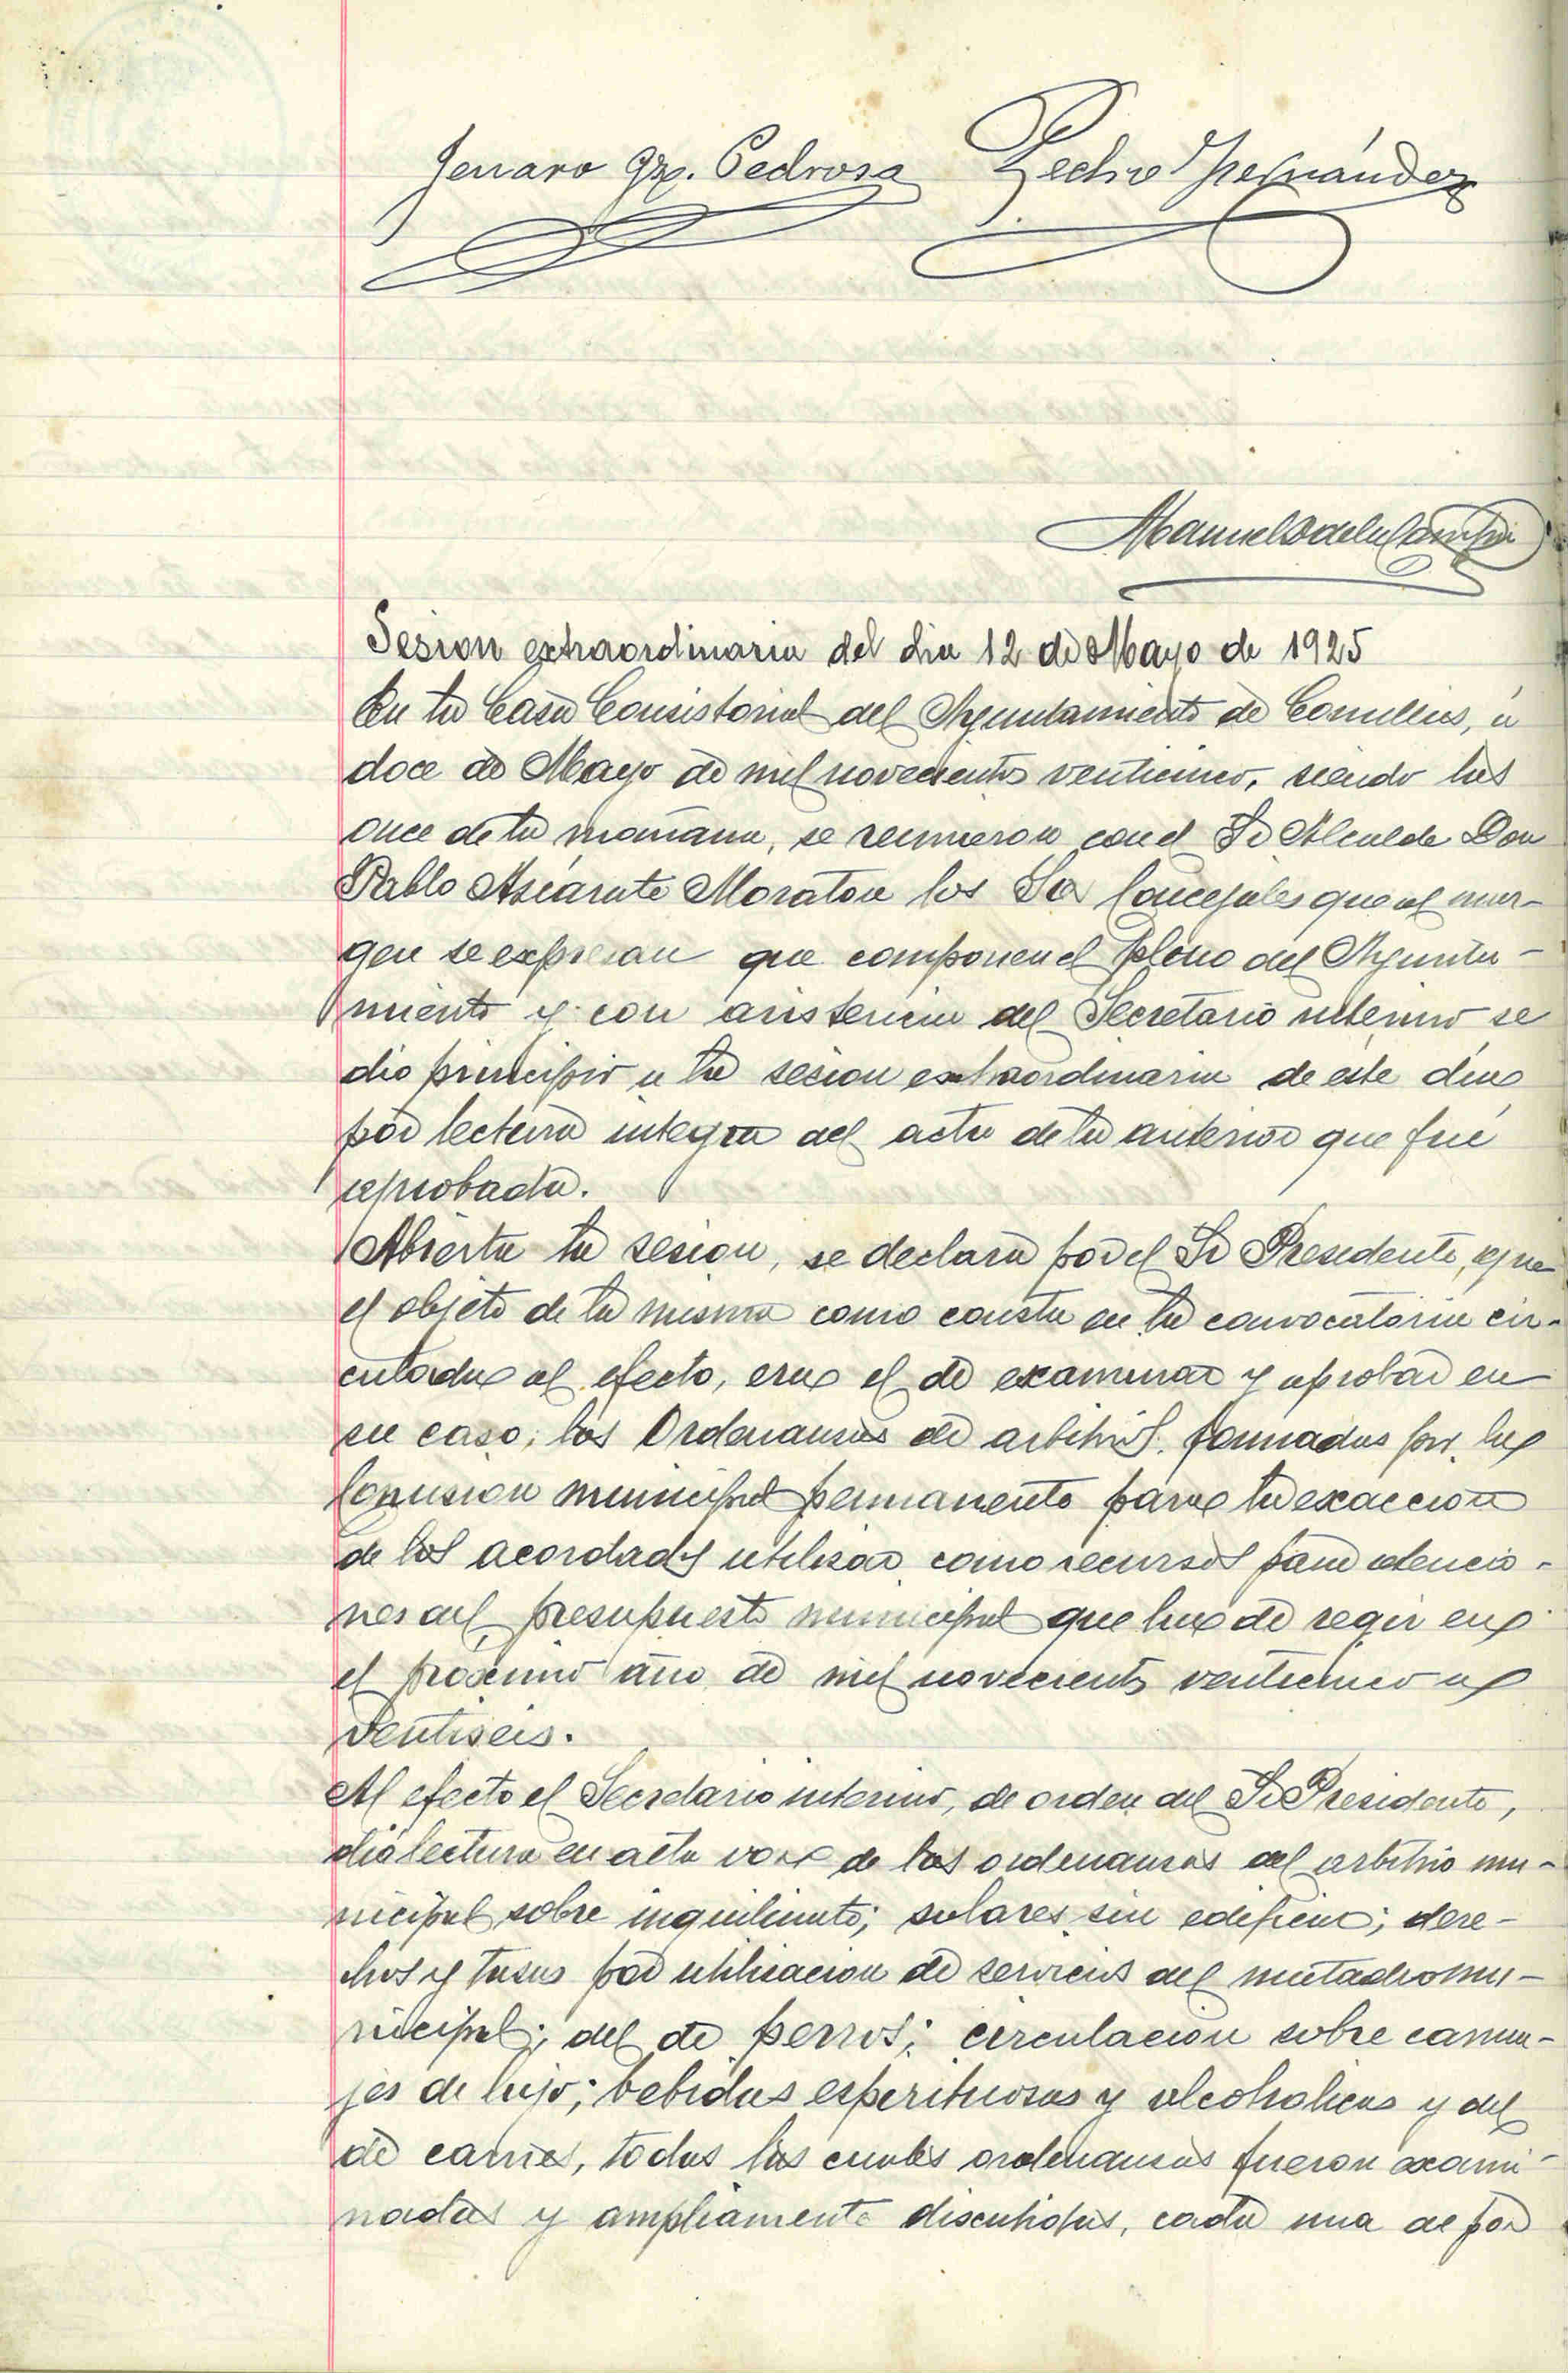 Genaro Gz. Pedrosa Pedro Fernández
Manuel
Sesion extraordinaria del dia 12 de Mayo de 1925
En la Casa Consistorial del Ayuntamiento de Comillas, á
doce de Mayo de mil novecientos venticinco, siendo las
once de la mañana, se reunieron con el Sr Alcalde Don
Pablo Ascárate Moraton los Sres Concejales que al mar-
gen se expresan que componen el pleno del Ayunta-
miento y con asistencia del Secretario interino se
dio principio a la sesion extraordinaria de este dia
por lectura integra del acta de la anterior que fué
aprobada.
Abierta la sesion, se declara por el Sr Presidente, que
el objeto de la misma como consta en la convocatoria cir-
culada al efecto, era el de examinar y aprobar en
su caso, las Ordenansas de arbitrios formadas por la
Comision municipal permanente para la exaccion
de los acordados utilisar como recursos para atencio-
nes del presupuesto municipal que ha de regir en
el proximo año de mil novecientos venticinco a
ventiseis.
Al efecto el Secretario interino, de orden del Sr Presidente,
dió lectura en alta vox de las ordenansas del arbitrio mu-
nicipal sobre inquilinato; solares sin edificar; dere-
chos y tasas por utilisacion de servicios del matadero mu-
nicipal; del de perros; circulacion sobre carrua-
jes de lujo; bebidas esperituosas y alcoholicas y del
de carnes, todas las cuales ordenansas fueron exami-
nadas y ampliamente discutidas, cada una de por